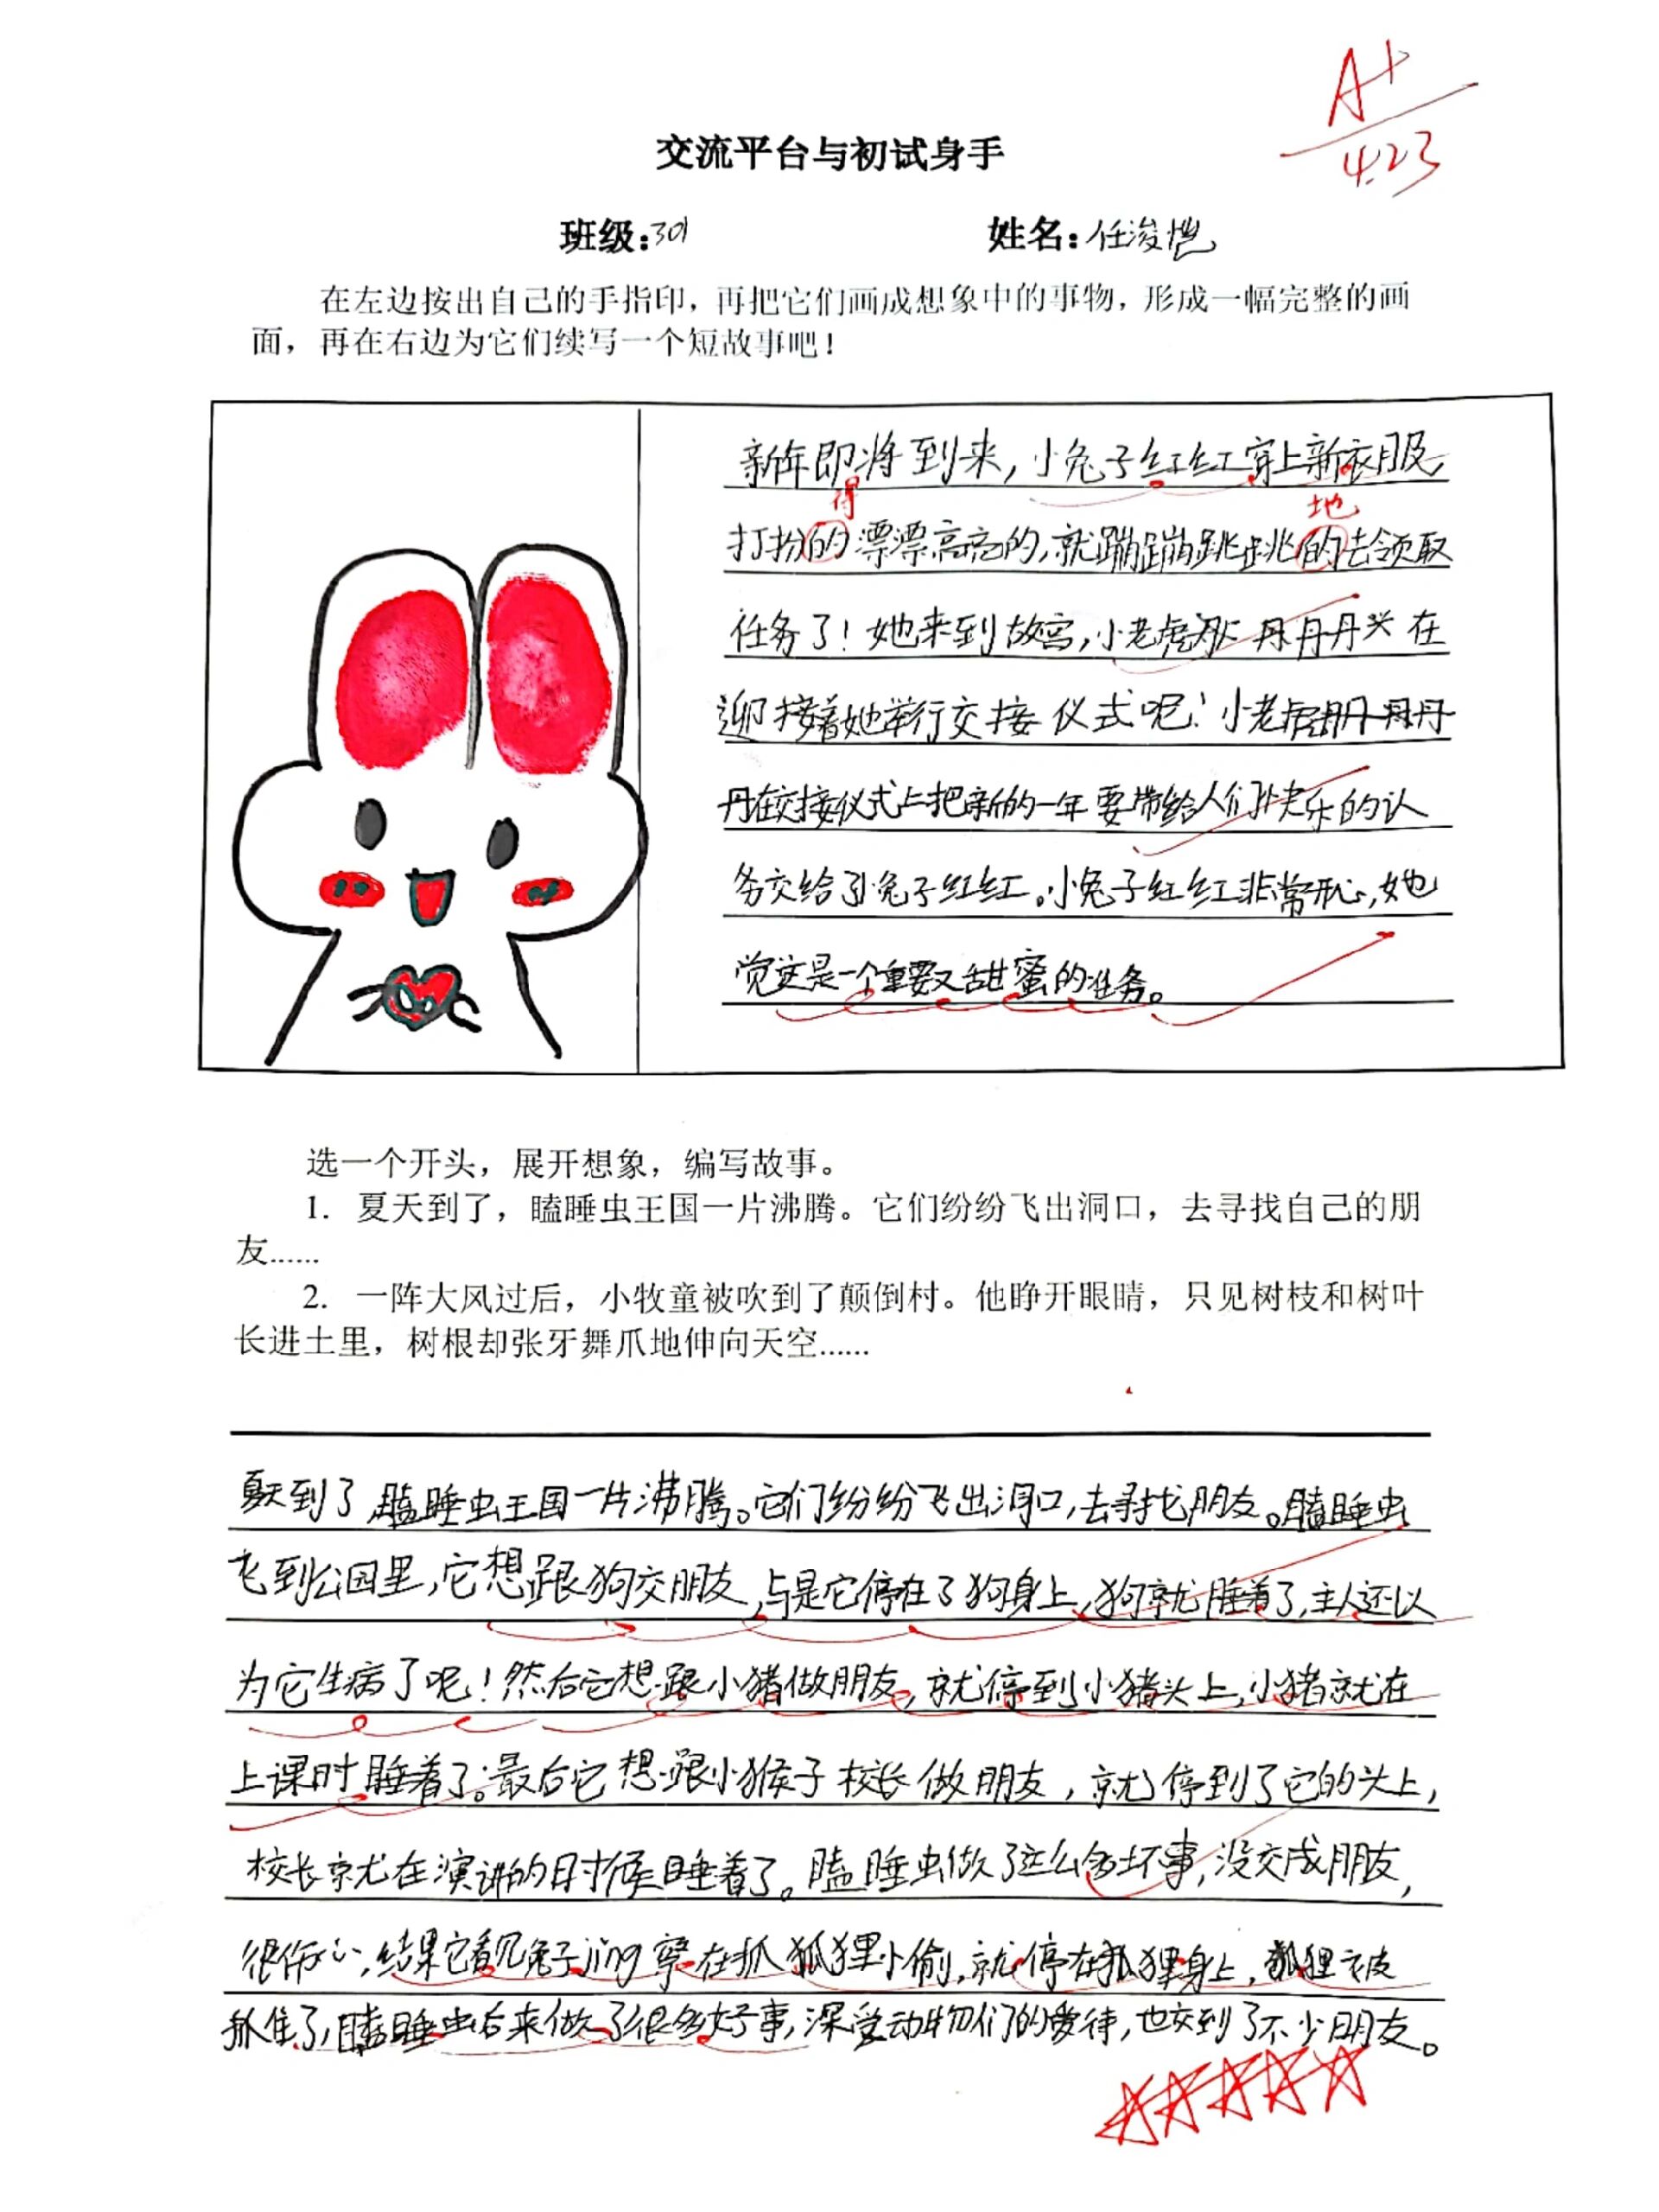 A+
4.23
交流平台与初试身手
班级:301 姓名:任浚恺
在左边按出自己的手指印，再把它们画成想象中的事物，形成一幅完整的画
面，再在右边为它们续写一个短故事吧！
新年即将到来，小兔子红红穿上新衣服，
得 地
打扮的漂漂亮亮的，就蹦蹦跳跳的去领取
任务了！她来到故宫，小老虎 丹丹 在
迎接着她举行交接仪式呢！小老虎 丹
丹在交接仪式上把新的一年要带给人们快乐的认
务交给了小兔子红红。小兔子红红非常开心，她
觉这是一个重要又甜蜜的任务。
选一个开头，展开想象，编写故事。
1. 夏天到了，瞌睡虫王国一片沸腾。它们纷纷飞出洞口，去寻找自己的朋
友……
2. 一阵大风过后，小牧童被吹到了颠倒村。他睁开眼睛，只见树枝和树叶
长进土里，树根却张牙舞爪地伸向天空……
夏天到了,瞌睡虫王国一片沸腾。它们纷纷飞出洞口,去寻找朋友。瞌睡虫
飞到公园里,它想跟狗交朋友,与是它停在了狗身上,狗就睡着了,主人还以
为它生病了呢！然后它想跟小猪做朋友,就停到小猪头上,小猪就在
上课时睡着了。最后它想跟小猴子校长做朋友,就停到了它的头上,
校长就在演讲的时候睡着了。瞌睡虫做了这么多坏事,没交成朋友,
很伤心,结果它看见兔子jing察在抓狐狸小偷,就停在狐狸身上,狐狸被
抓住了,瞌睡虫后来做了很多好事,深受动物们的爱待,也交到了不少朋友。